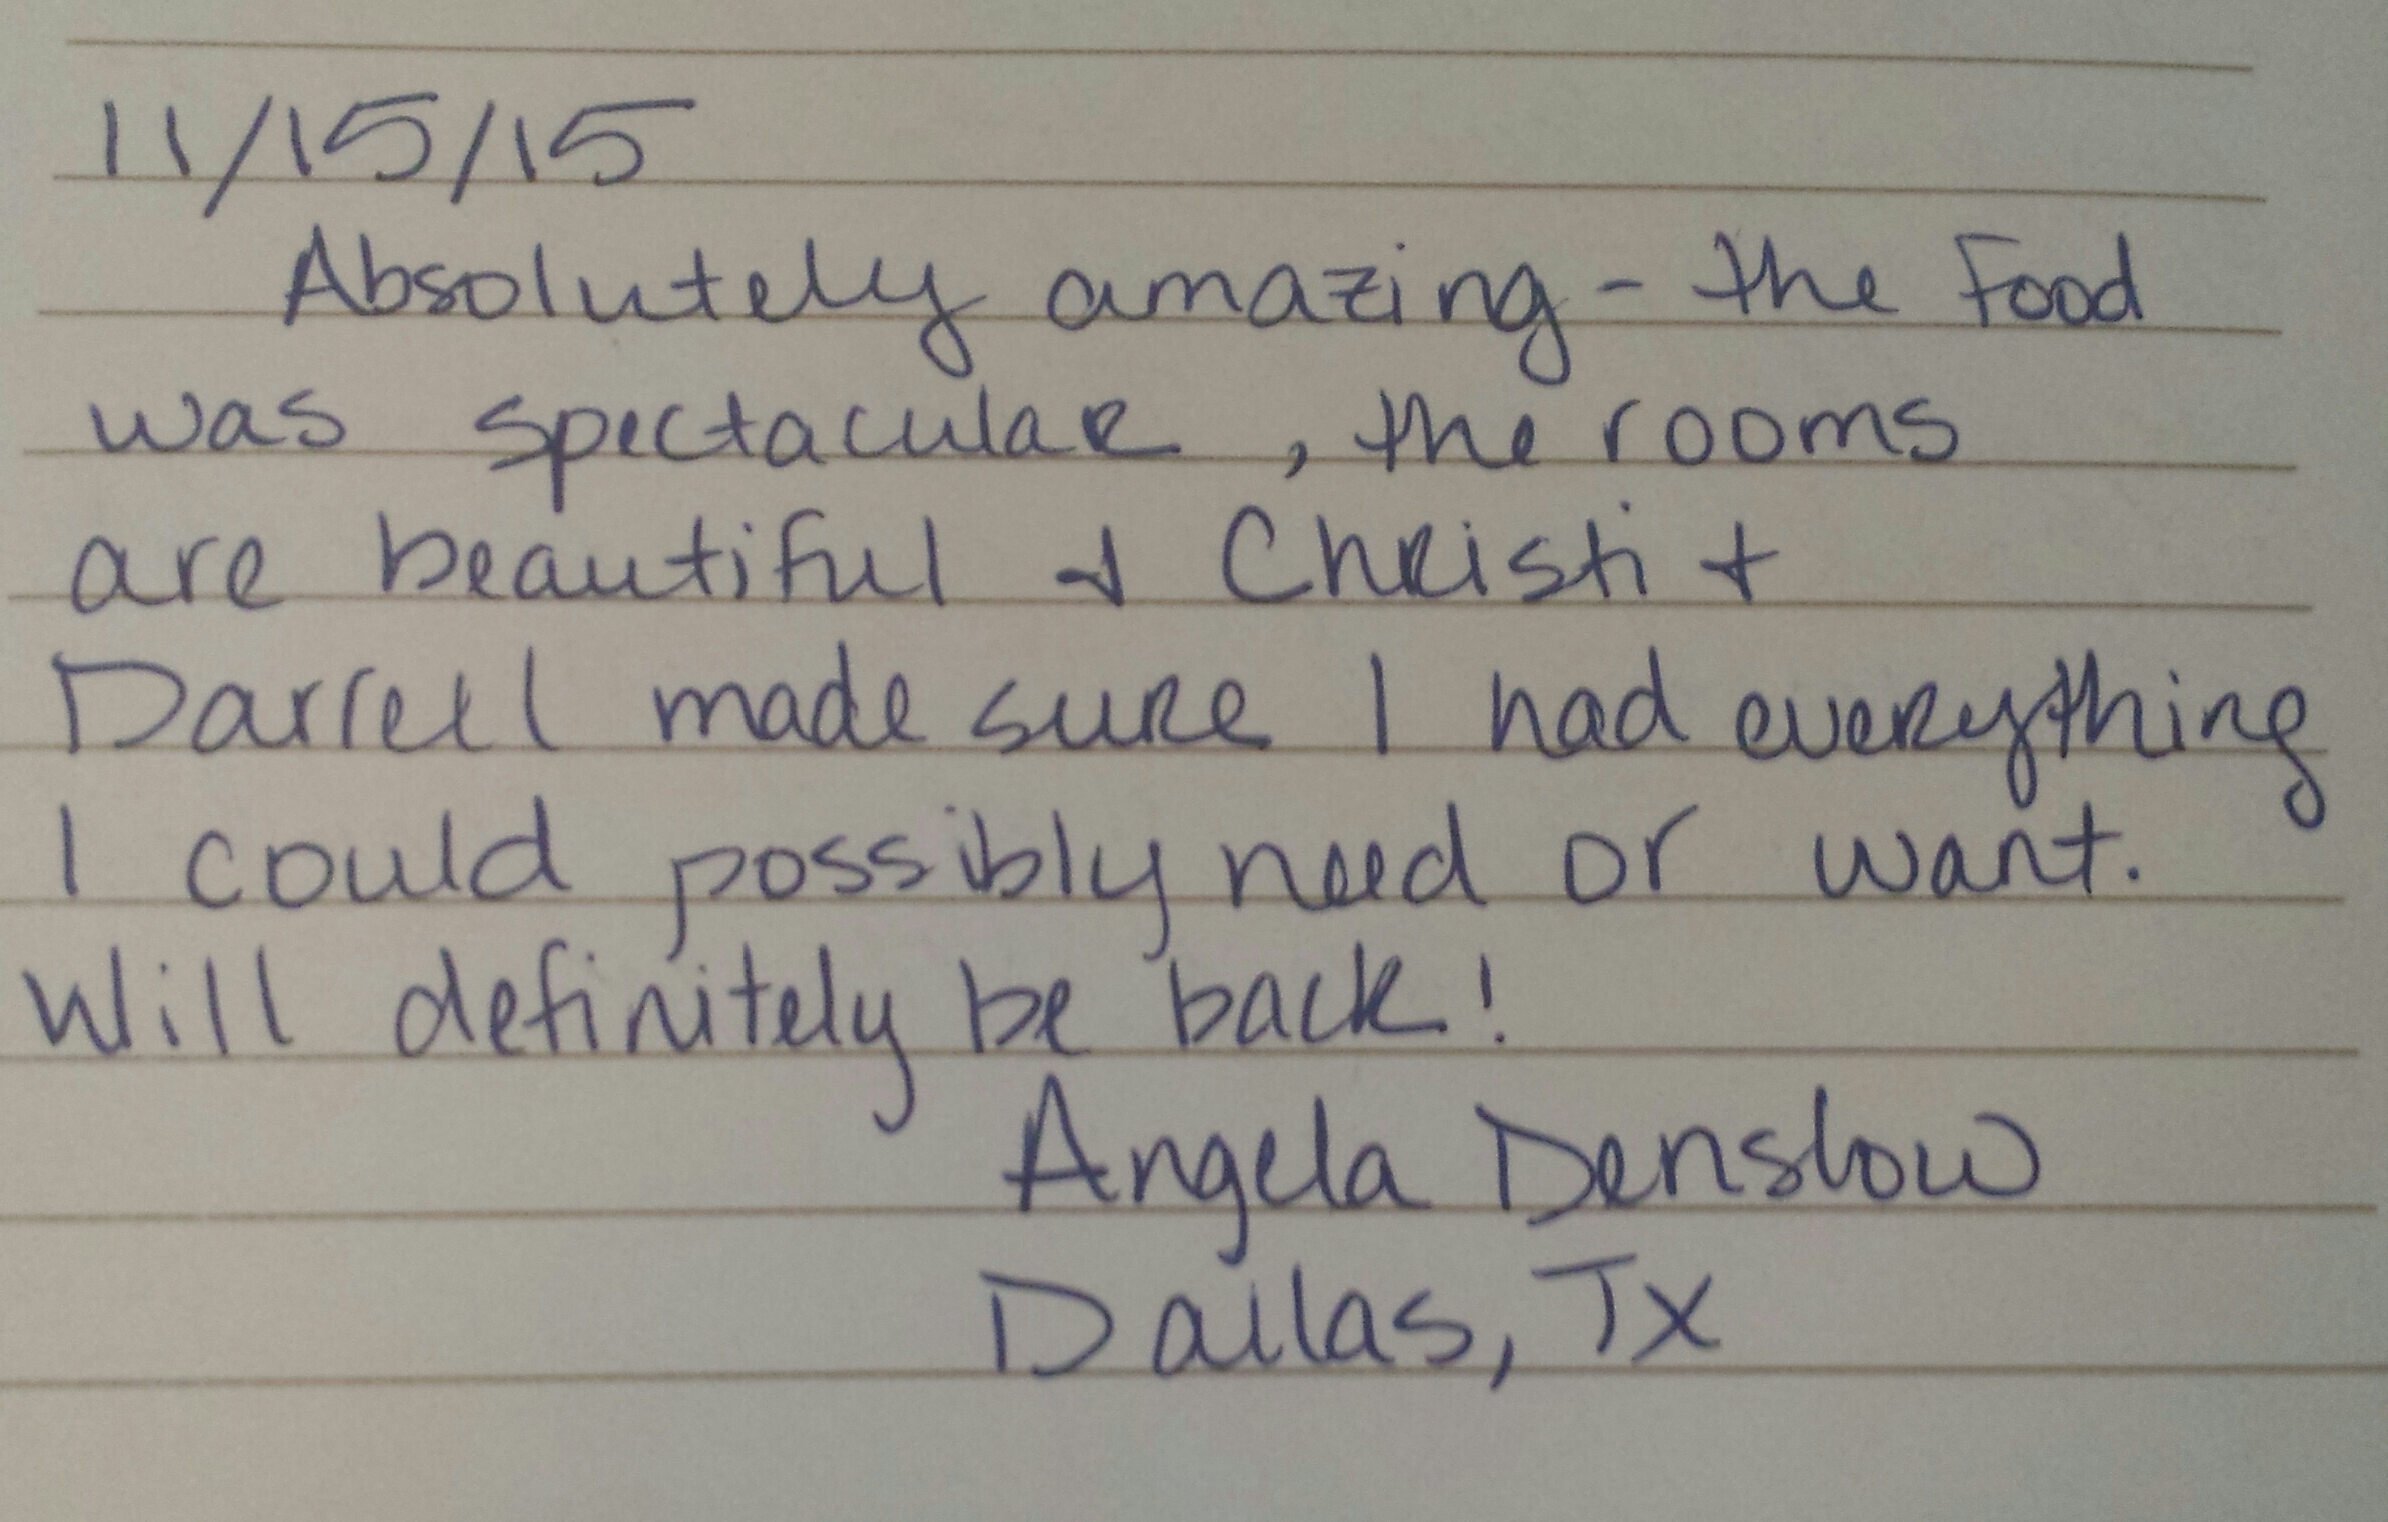 11/15/15
Absolutely amazing - the Food
was spectacular, the rooms
are beautiful & Christi +
Darrell made sure I had everything
I could possibly need or want.
Will definitely be back!
Angela Denslow
Dallas, Tx